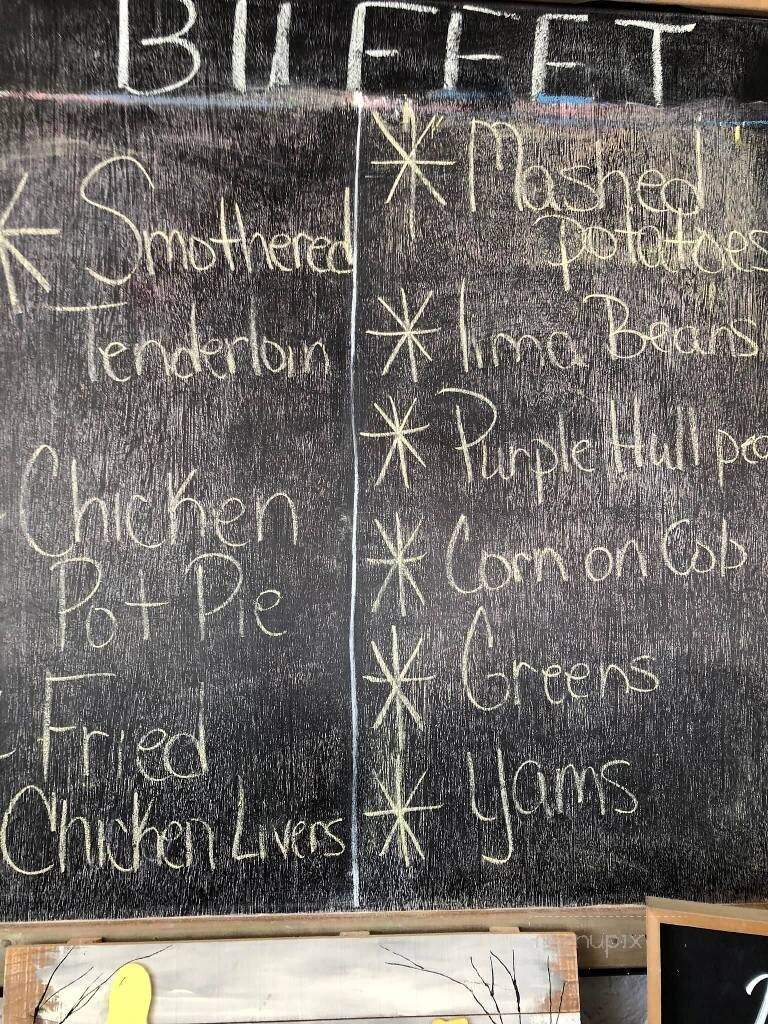 BUFFET
* Smothered
Tenderloin
Chicken
Pot Pie
Fried
Chicken Livers
* Mashed
potatoes
* lima Beans
* Purple Hull pea
* Corn on Cob
* Greens
* Yams